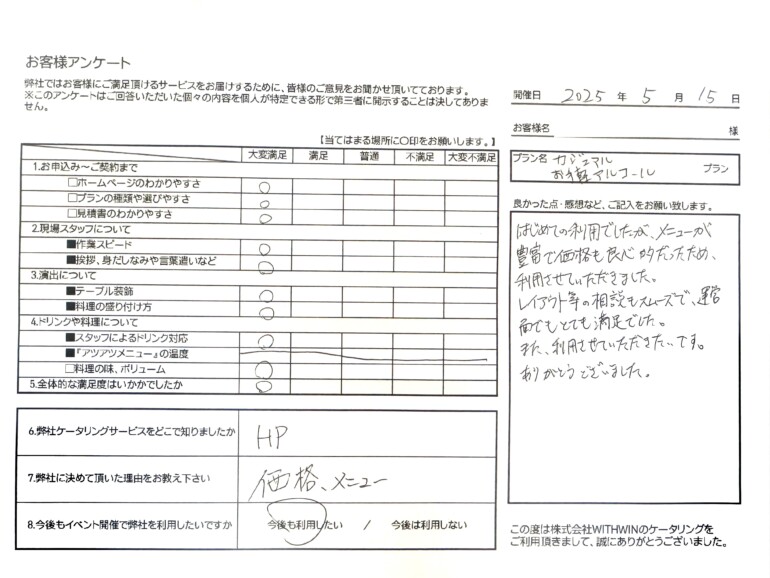 お客様アンケート
弊社ではお客様にご満足頂けるサービスをお届けするために、皆様のご意見をお聞かせ頂いております。
※このアンケートはご回答いただいた個々の内容を個人が特定できる形で第三者に開示することは決してありま
せん。
開催日 2025 年 5 月 15 日
お客様名 様
プラン名 カジュアル
お手軽アルコール プラン
【当てはまる場所に○印をお願いします。】
大変満足 満足 普通 不満足 大変不満足
1.お申込み～ご契約まで
□ホームページのわかりやすさ ○
□プランの種類や選びやすさ ○
□見積書のわかりやすさ ○
2.現場スタッフについて
■作業スピード ○
■挨拶、身だしなみや言葉遣いなど ○
3.演出について
■テーブル装飾 ○
■料理の盛り付け方 ○
4.ドリンクや料理について
■スタッフによるドリンク対応 ○
■『アツアツメニュー』の温度
□料理の味、ボリューム ○
5.全体的な満足度はいかがでしたか ○
6.弊社ケータリングサービスをどこで知りましたか HP
7.弊社に決めて頂いた理由をお教え下さい 価格、メニュー
8.今後もイベント開催で弊社を利用したいですか 今後も利用したい / 今後は利用しない
良かった点・感想など、ご記入をお願い致します。
はじめての利用でしたが、メニューが
豊富で価格も良心的だったため、
利用させていただきました。
レイアウト等の相談もスムーズで、運営
面でもとても満足でした。
また、利用させていただきたいです。
ありがとうございました。
この度は株式会社WITHWINのケータリングを
ご利用頂きまして、誠にありがとうございました。